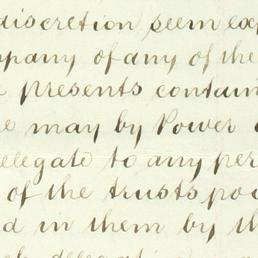 discretion seem exp
mpany of any of the
presents contain
may by Power
delegate to any per
of the trusts po
d in them by th